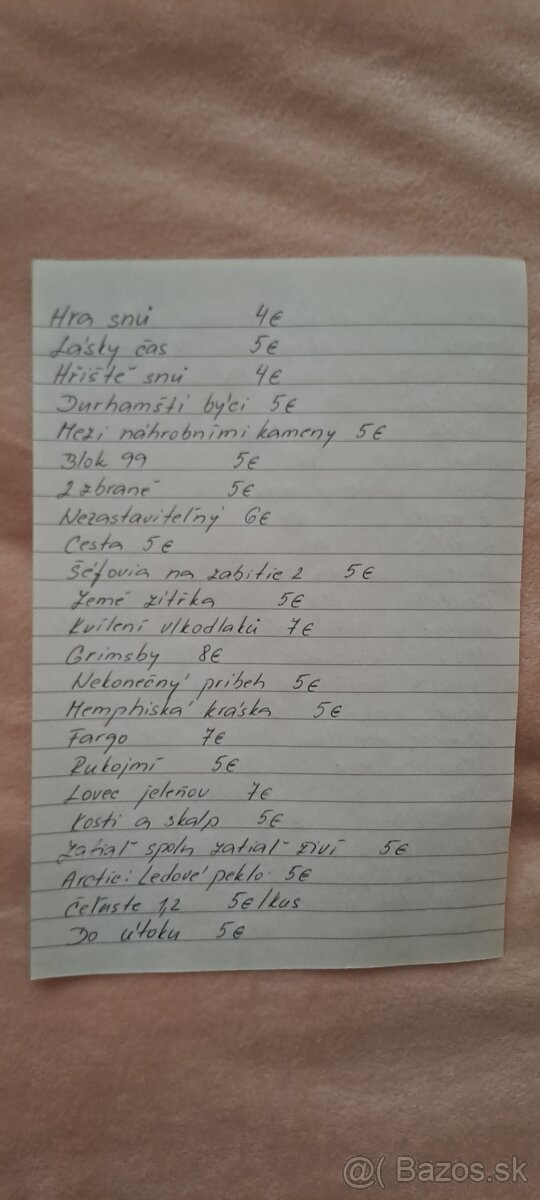 Hra snú 4€
Lásky čas 5€
Hřiště snú 4€
Durhamští býci 5€
Mezi náhrobními kameny 5€
Blok 99 5€
2 zbraně 5€
Nezastaviteľný 6€
Cesta 5€
Šéfovia na zabitie 2 5€
Země zítřka 5€
Kvílení vlkodlaků 7€
Grimsby 8€
Nekonečný príbeh 5€
Memphiská kráska 5€
Fargo 7€
Rukojmí 5€
Lovec jeleňov 7€
Kosti a skalp 5€
Zatiaľ spolu zatiaľ živí 5€
Arctic: Ledové peklo 5€
Čeľuste 1,2 5€/kus
Do útoku 5€
@( Bazos.sk